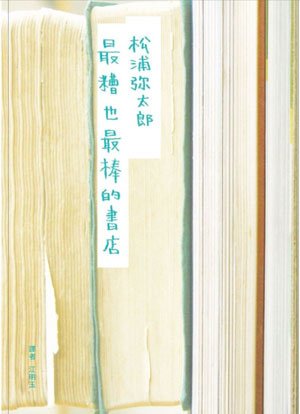 松浦弥太郎
最糟也最棒的書店
譯者 江明玉